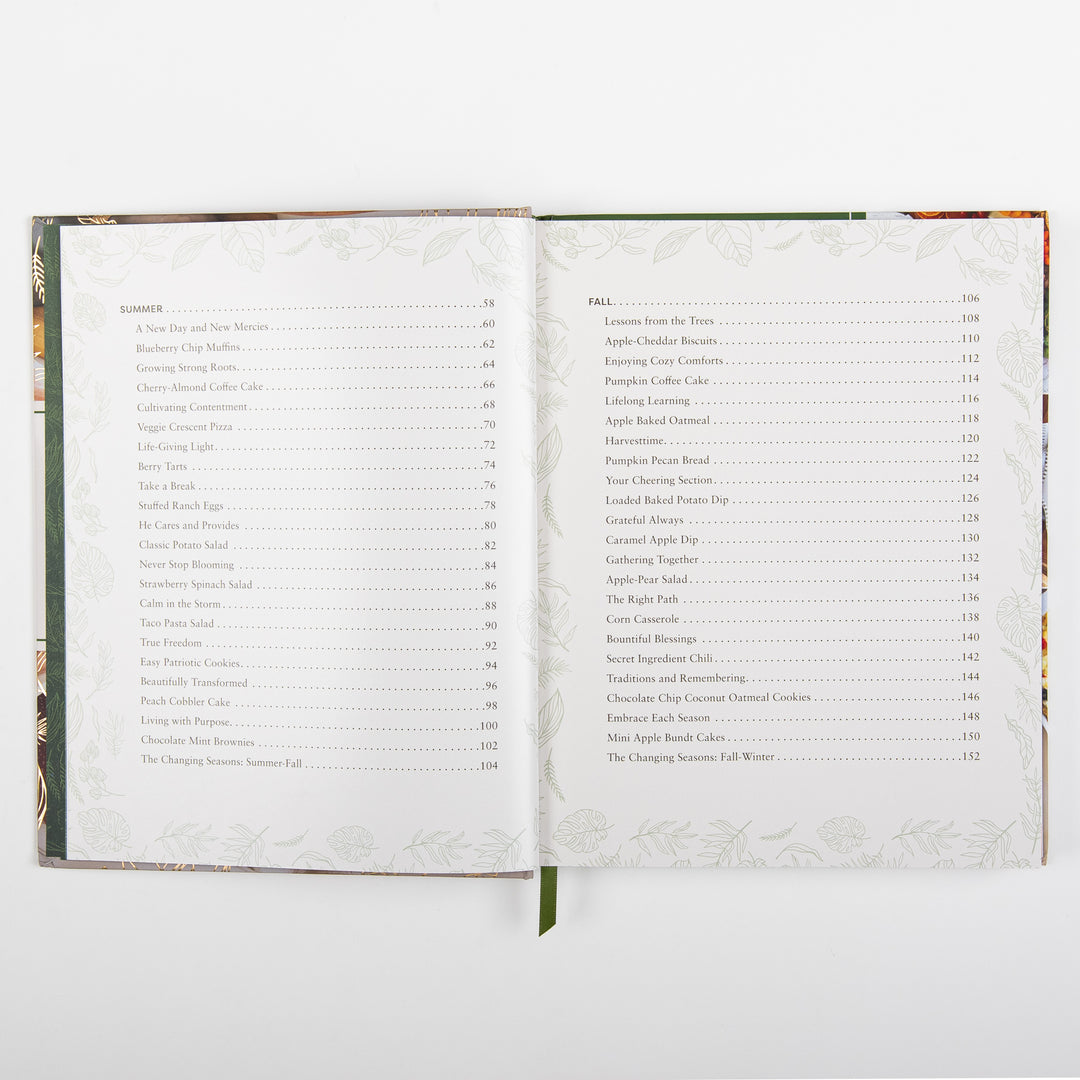 SUMMER . . . . . 58
A New Day and New Mercies . . . . . 60
Blueberry Chip Muffins . . . . . 62
Growing Strong Roots . . . . . 64
Cherry-Almond Coffee Cake . . . . . 66
Cultivating Contentment . . . . . 68
Veggie Crescent Pizza . . . . . 70
Life-Giving Light . . . . . 72
Berry Tarts . . . . . 74
Take a Break . . . . . 76
Stuffed Ranch Eggs . . . . . 78
He Cares and Provides . . . . . 80
Classic Potato Salad . . . . . 82
Never Stop Blooming . . . . . 84
Strawberry Spinach Salad . . . . . 86
Calm in the Storm . . . . . 88
Taco Pasta Salad . . . . . 90
True Freedom . . . . . 92
Easy Patriotic Cookies . . . . . 94
Beautifully Transformed . . . . . 96
Peach Cobbler Cake . . . . . 98
Living with Purpose . . . . . 100
Chocolate Mint Brownies . . . . . 102
The Changing Seasons: Summer-Fall . . . . . 104
FALL . . . . . 106
Lessons from the Trees . . . . . 108
Apple-Cheddar Biscuits . . . . . 110
Enjoying Cozy Comforts . . . . . 112
Pumpkin Coffee Cake . . . . . 114
Lifelong Learning . . . . . 116
Apple Baked Oatmeal . . . . . 118
Harvesttime . . . . . 120
Pumpkin Pecan Bread . . . . . 122
Your Cheering Section . . . . . 124
Loaded Baked Potato Dip . . . . . 126
Grateful Always . . . . . 128
Caramel Apple Dip . . . . . 130
Gathering Together . . . . . 132
Apple-Pear Salad . . . . . 134
The Right Path . . . . . 136
Corn Casserole . . . . . 138
Bountiful Blessings . . . . . 140
Secret Ingredient Chili . . . . . 142
Traditions and Remembering . . . . . 144
Chocolate Chip Coconut Oatmeal Cookies . . . . . 146
Embrace Each Season . . . . . 148
Mini Apple Bundt Cakes . . . . . 150
The Changing Seasons: Fall-Winter . . . . . 152